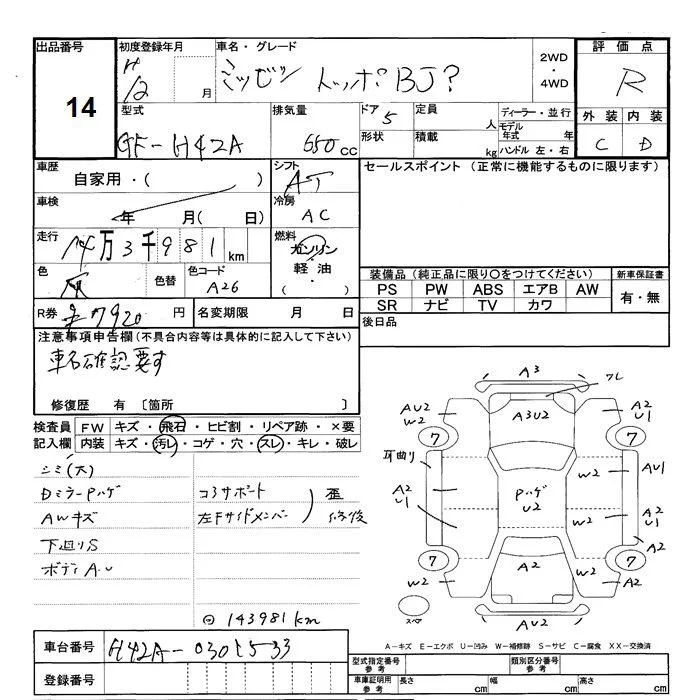 出品番号 初度登録年月 車名・グレード 2WD・4WD 評価点
14 H 12 月 ミツビシ トッポBJ? R
型式 排気量 ドア 5 定員 人 ディーラー・並行 外装 内装
GF-H42A 650 cc 形状 積載 kg モデル年式 年 ハンドル 左・右 C D
車歴 自家用・( ) シフト AT セールスポイント (正常に機能するものに限ります)
車検 年 月( 日) 冷房 AC
走行 14万3千981 km 燃料 ガソリン・軽油・( )
色 色替 色コード A26 装備品(純正品に限り○をつけてください) 新車保証書
PS PW ABS エアB AW 有・無
SR ナビ TV カワ
R券 7920 円 名変期限 月 日 後日品
注意事項申告欄(不具合内容等は具体的に記入して下さい)
車名確認要す
修復歴 有 〔箇所 〕
検査員記入欄 FW キズ・飛石・ヒビ割・リペア跡・×要
内装 キズ・汚レ・コゲ・穴・スレ・キレ・破レ
シミ(大)
Dミラーハゲ コアサポート 歪
AWキズ 左Fサイドメンバー 修後
下廻りS
ボディA.U
143981km
A3
ワレ
AU2 W2 A3U2 A2 U1
7 7
耳曲り W2 AU1
A2 U1 Pハゲ U2 W2 A2 U1
A2
7 7
W2 A2 W2 A2
スペア AU2
A-キズ E-エクボ U-凹み W-補修跡 S-サビ C-腐食 XX-交換済
車台番号 H42A-0301533
登録番号
型式指定番号 参考 類別区分番号 参考
車庫証明用 参考 長さ cm 幅 cm 高さ cm